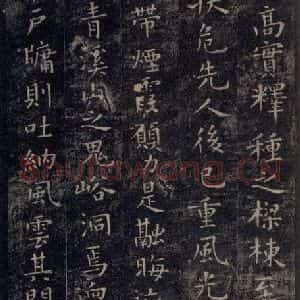 高實釋種之樑棟至
危先人後己重風光
帶煙霞願力是融晦
青溪內之毘峪洞焉
戶牖則吐納風雲其
Shufawang.CN